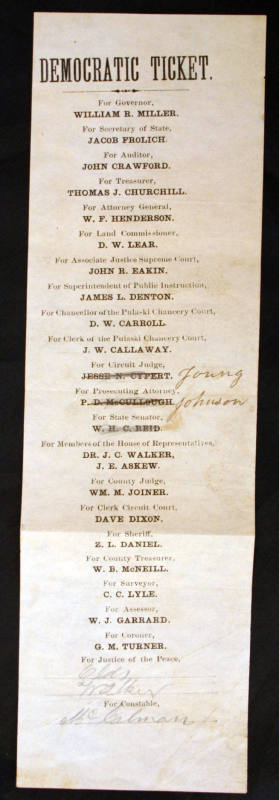 DEMOCRATIC TICKET.
For Governor,
WILLIAM R. MILLER.
For Secretary of State,
JACOB FROLICH.
For Auditor,
JOHN CRAWFORD.
For Treasurer,
THOMAS J. CHURCHILL.
For Attorney General,
W. F. HENDERSON.
For Land Commissioner,
D. W. LEAR.
For Associate Justice Supreme Court,
JOHN R. EAKIN.
For Superintendent of Public Instruction,
JAMES L. DENTON.
For Chancellor of the Pulaski Chancery Court,
D. W. CARROLL.
For Clerk of the Pulaski Chancery Court,
J. W. CALLAWAY.
For Circuit Judge,
JESSE N. CYPERT. Young
For Prosecuting Attorney,
P. D. McCULLOUGH. Johnson
For State Senator,
W. H. C. REID.
For Members of the House of Representatives,
DR. J. C. WALKER,
J. E. ASKEW.
For County Judge,
WM. M. JOINER.
For Clerk Circuit Court,
DAVE DIXON.
For Sheriff,
Z. L. DANIEL.
For County Treasurer,
W. B. McNEILL.
For Surveyor,
C. C. LYLE.
For Assessor,
W. J. GARRARD.
For Coroner,
G. M. TURNER.
For Justice of the Peace,
Walker
For Constable,